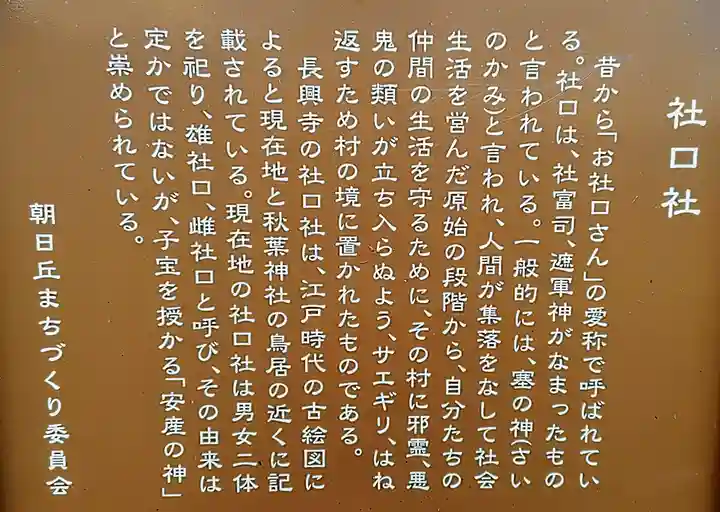 社口社
昔から「お社口さん」の愛称で呼ばれてい
る。社口は、社富司、遮軍神がなまったもの
と言われている。一般的には、塞の神(さい
のかみ)と言われ、人間が集落をなして社会
生活を営んだ原始の段階から、自分たちの
仲間の生活を守るために、その村に邪霊、悪
鬼の類いが立ち入らぬよう、サエギリ、はね
返すため村の境に置かれたものである。
長興寺の社口社は、江戸時代の古絵図に
よると現在地と秋葉神社の鳥居の近くに記
載されている。現在地の社口社は男女二体
を祀り、雄社口、雌社口と呼び、その由来は
定かではないが、子宝を授かる「安産の神」
と崇められている。
朝日丘まちづくり委員会